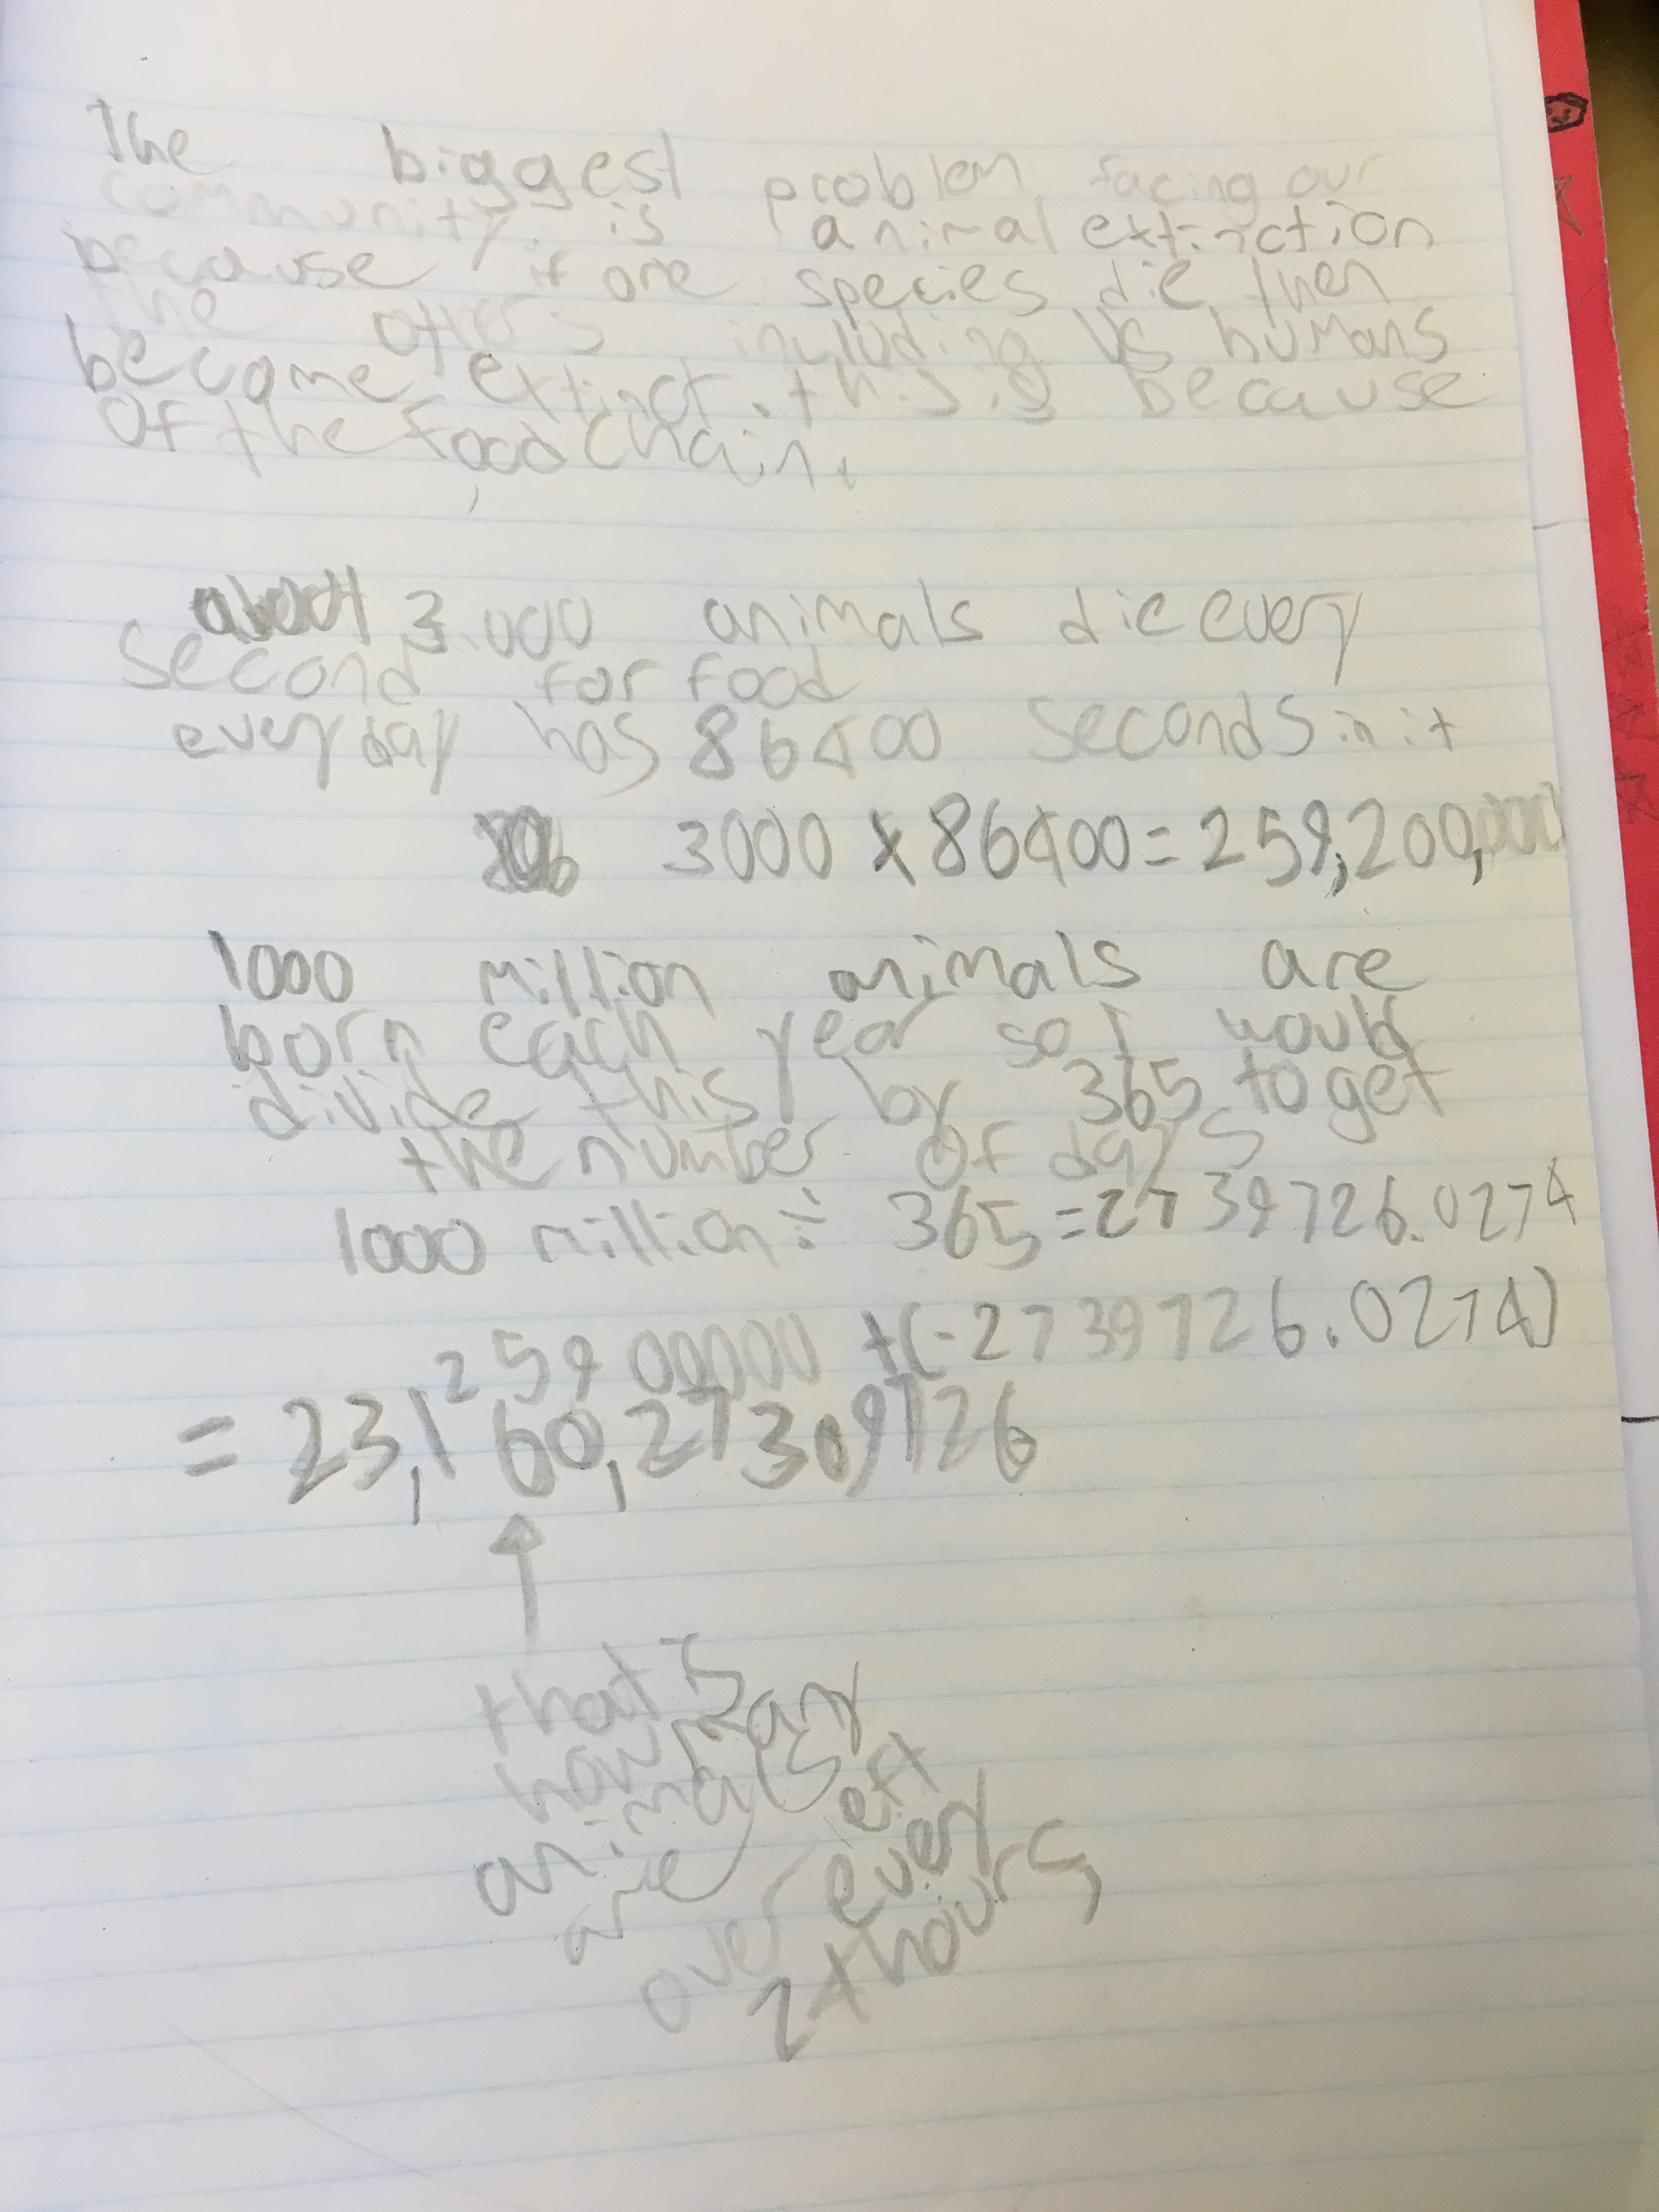 The biggest problem facing our
community is animal extinction
because if one species die then
the others including us humans
become extinct. this is because
Of the food chain.
about 3.000 animals die every
second for food
every day has 86400 seconds in it
3000 x 86400 = 259,200,000
1000 million animals are
born each year so I would
divide this by 365 to get
the number of days
1000 million ÷ 365 = 2739726.0274
25900000 +(-2739726.0274)
= 23,160,27309726
that is
how many
animals
are left
over every
24 hours